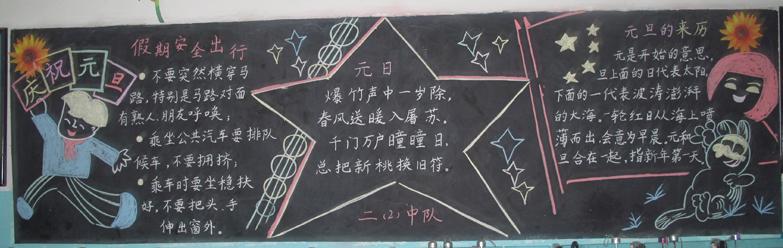 庆祝元旦
假期安全出行
不要突然横穿马
路,特别是马路对面
有熟人、朋友呼唤;
乘坐公共汽车要排队
候车,不要拥挤;
乘车时要坐稳扶
好,不要把头、手
伸出窗外。
元日
爆竹声中一岁除,
春风送暖入屠苏。
千门万户曈曈日,
总把新桃换旧符。
二(2)中队
元旦的来历
元是开始的意思,
旦上面的日代表太阳,
下面的一代表波涛澎湃
的大海,一轮红日从海上喷
薄而出,会意为早晨,元和
旦合在一起,指新年第一天